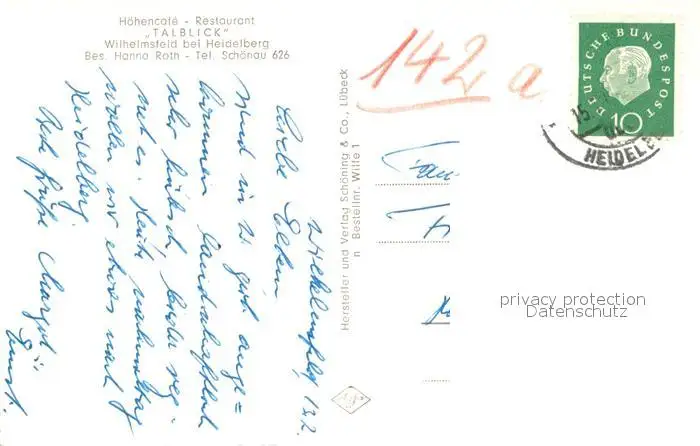 Höhencafé - Restaurant
„TALBLICK"
Wilhelmsfeld bei Heidelberg
Bes. Hanna Roth - Tel. Schönau 626
142 a
DEUTSCHE BUNDESPOST
10
15
HEIDELB
Hersteller und Verlag Schöning & Co., Lübeck
n Bestellnr. Wilfe 1
Wilhelmsfeld, 13.2.
Liebe Eltern
sind in W. gut ange=
kommen Landschaftlich
sehr hübsch, leider reg-
net es. Heute nachmittag
wollen wir etwas nach
Heidelberg.
Viele Grüße Margot
u. Ernst.
Fam
privacy protection
Datenschutz